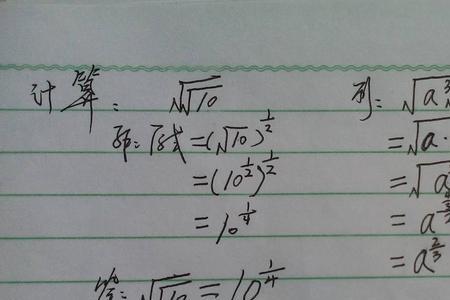 计算: √√10
解: 原式 = (√10)^(1/2)
= (10^(1/2))^(1/2)
= 10^(1/4)
答: √√10 = 10^(1/4)
例: √a
= √a·
= √a
= a
= a^(2/3)